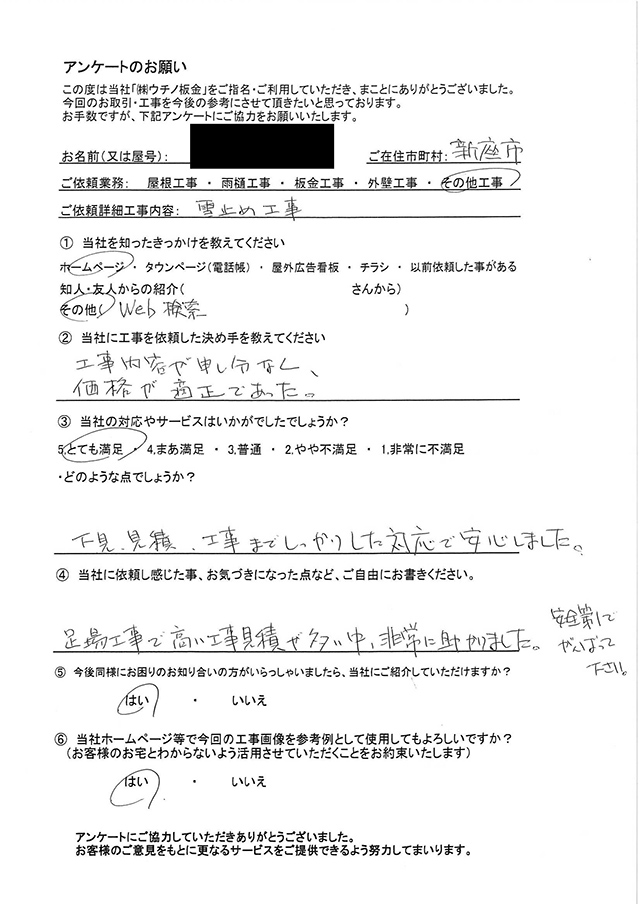 アンケートのお願い
この度は当社「㈱ウチノ板金」をご指名・ご利用していただき、まことにありがとうございました。
今回のお取引・工事を今後の参考にさせて頂きたいと思っております。
お手数ですが、下記アンケートにご協力をお願いいたします。
お名前(又は屋号): ご在住市町村: 新座市
ご依頼業務: 屋根工事 ・ 雨樋工事 ・ 板金工事 ・ 外壁工事 ・ その他工事
ご依頼詳細工事内容: 雪止め工事
① 当社を知ったきっかけを教えてください
ホームページ ・ タウンページ(電話帳) ・ 屋外広告看板 ・ チラシ ・ 以前依頼した事がある
知人・友人からの紹介( さんから)
その他( Web検索 )
② 当社に工事を依頼した決め手を教えてください
工事内容が申し分なく、
価格が適正であった。
③ 当社の対応やサービスはいかがでしたでしょうか?
5.とても満足 ・ 4.まあ満足 ・ 3.普通 ・ 2.やや不満足 ・ 1.非常に不満足
・どのような点でしょうか?
下見、見積、工事までしっかりした対応で安心しました。
④ 当社に依頼し感じた事、お気づきになった点など、ご自由にお書きください。
足場工事で高い工事見積が多い中、非常に助かりました。
安全第一で
がんばって
下さい。
⑤ 今後同様にお困りのお知り合いの方がいらっしゃいましたら、当社にご紹介していただけますか?
はい ・ いいえ
⑥ 当社ホームページ等で今回の工事画像を参考例として使用してもよろしいですか?
(お客様のお宅とわからないよう活用させていただくことをお約束いたします)
はい ・ いいえ
アンケートにご協力していただきありがとうございました。
お客様のご意見をもとに更なるサービスをご提供できるよう努力してまいります。